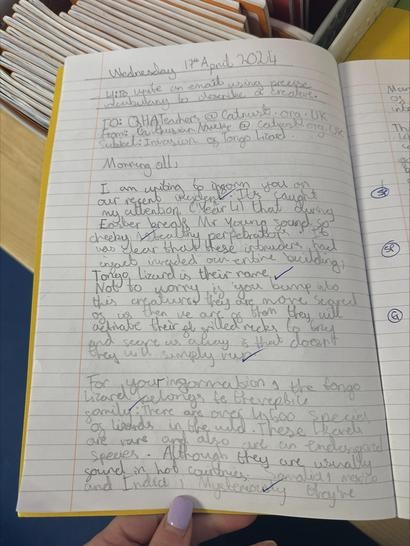 Wednesday 17th April 2024
LO: To write an email using precise
vocabulary to describe a creature.
TO: QHATeachers @ Catrust. org. UK
From: @ Catrust.org.UK
Subject: Invasion of Tongo Lizard
Morning all,
I am writing to inform you on
our recent incident. It's caught
my attention (Year 4) that during
Easter break Mr Young sound 5
cheeky, stealthy perpetrators. It
was clear that these intruders had
invaded our entire building,
Tongo Lizard is their name.
Not to worry is you bump into
this creature they are more scared
of us then we are of them they will
activate their frilled necks to try
and scare us away is that doesn't
they will simply run.
For your information, the tongo
Lizard belongs to the reptile
family. There are over 4,600 species
of lizards in the wild. These
are rare and also are an endangered
species. Although they are usually
sound in hot countries, mexico
and India; Mysteriously they're